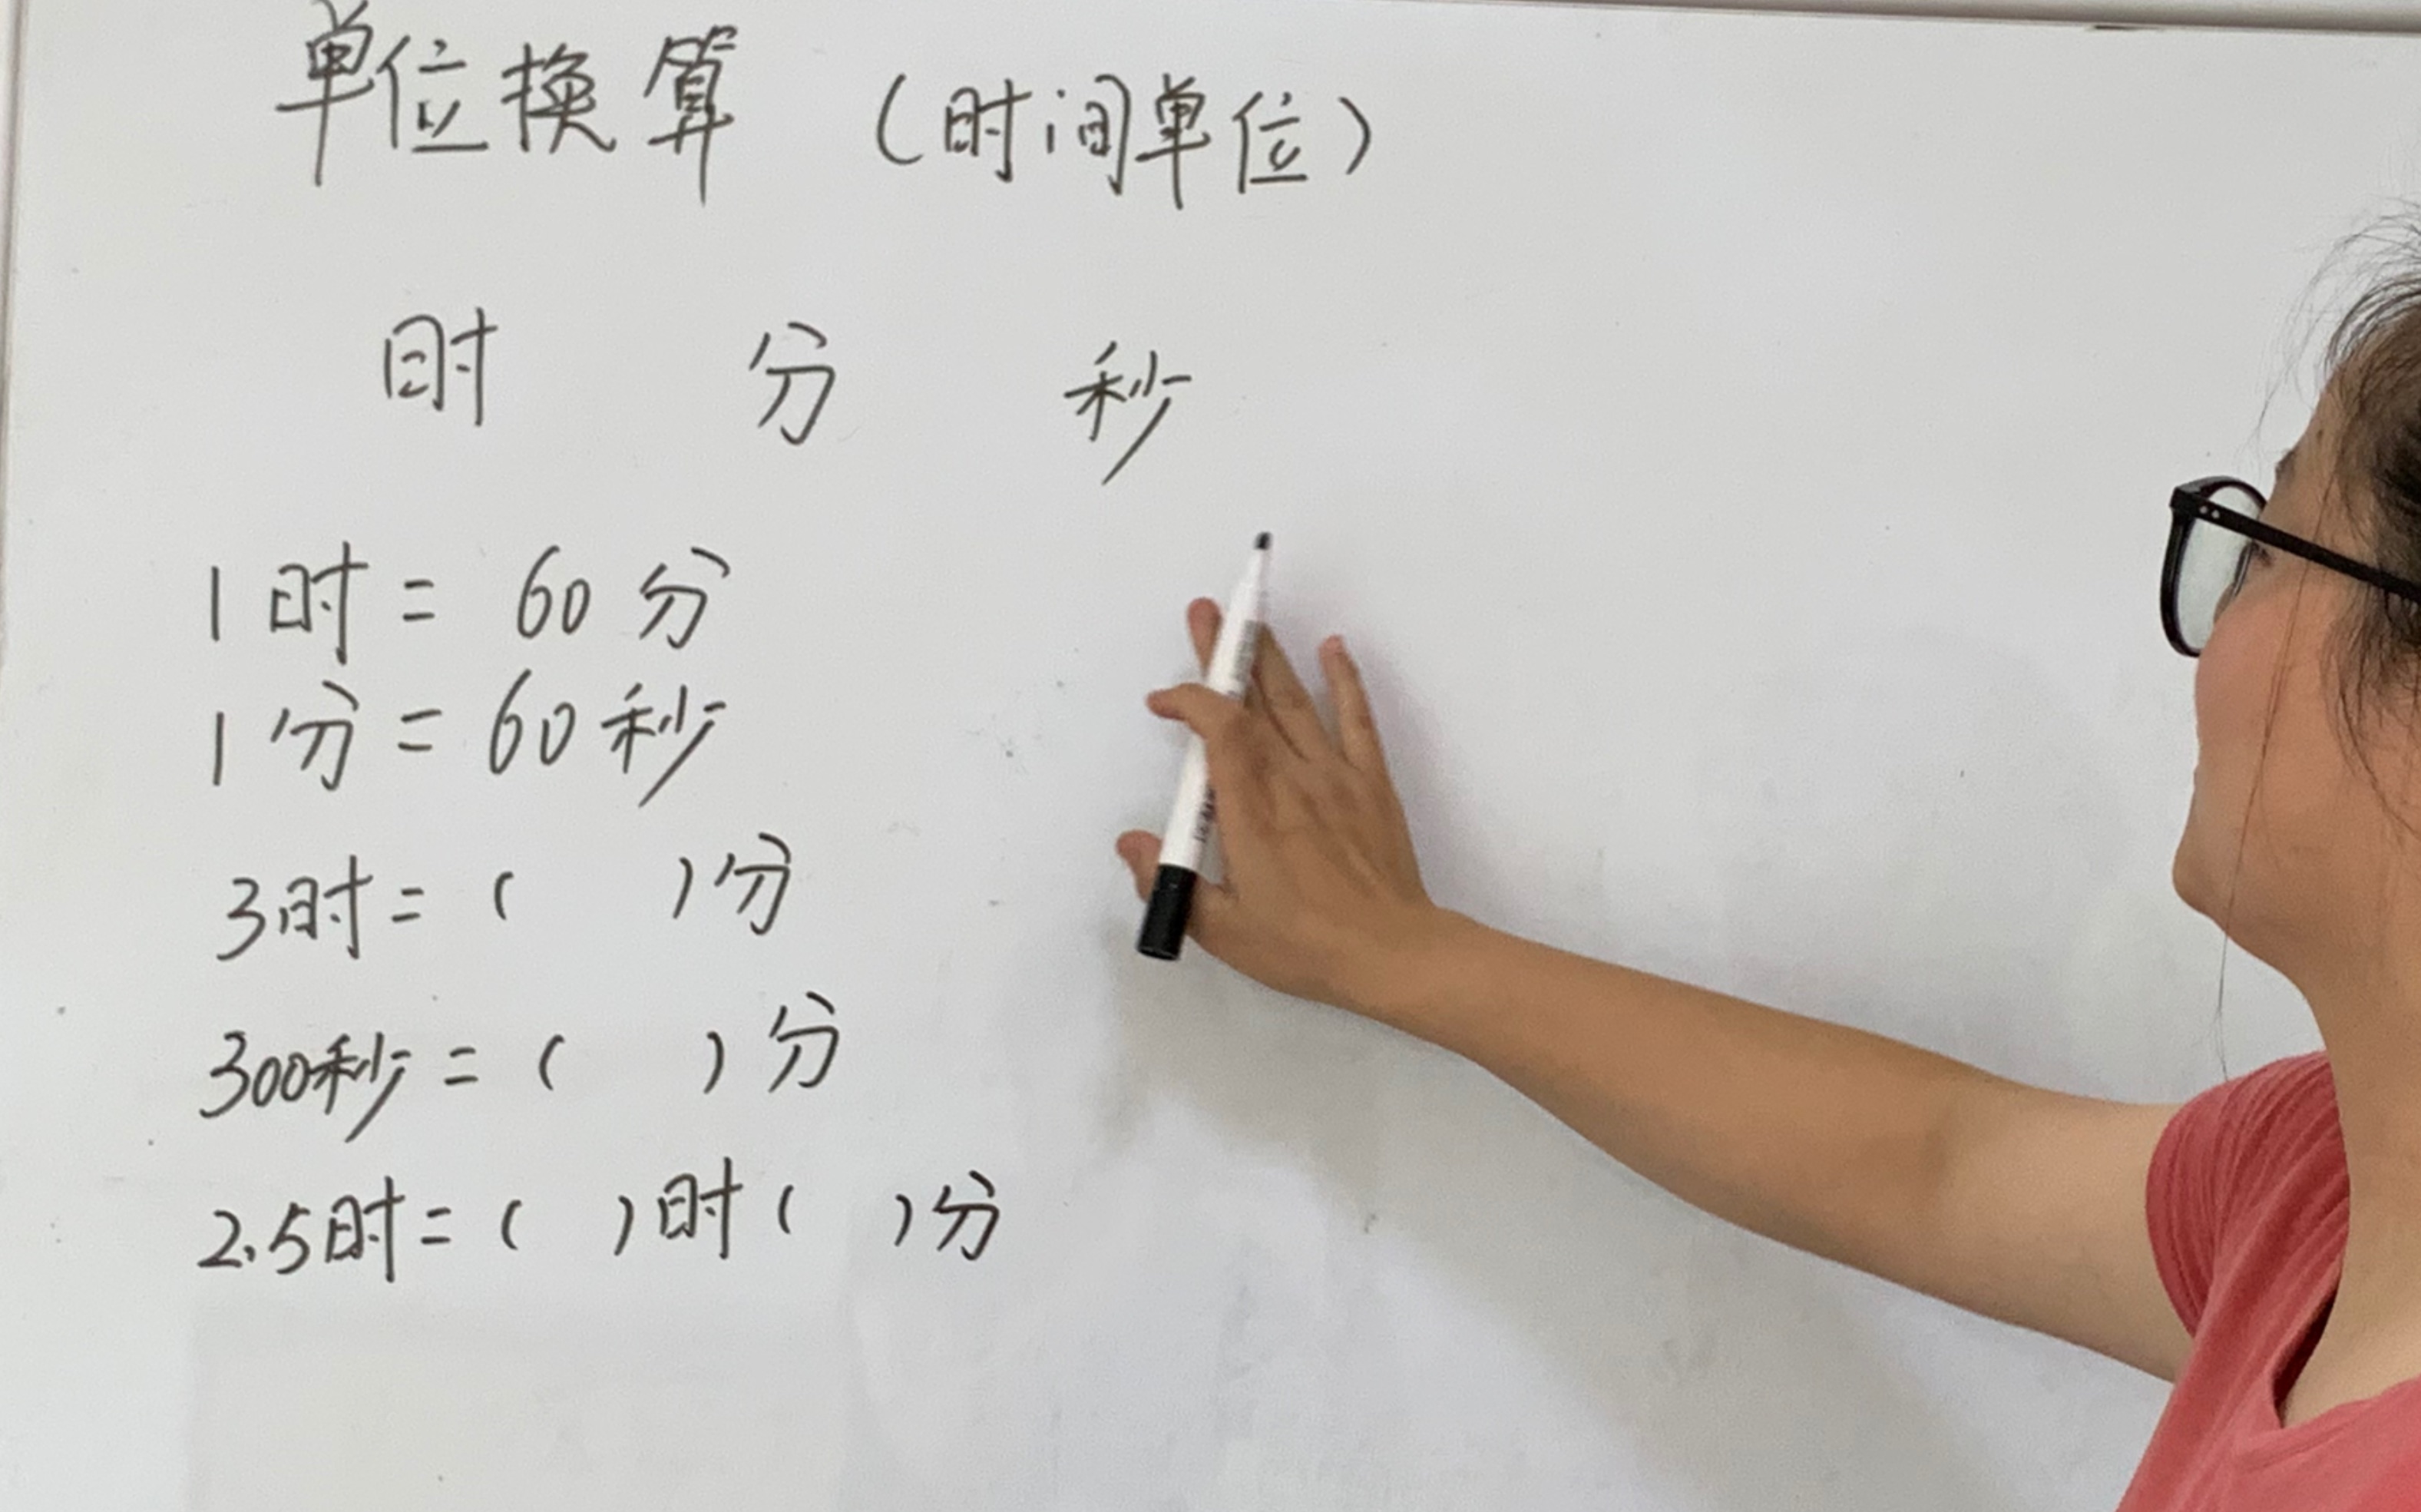 单位换算（时间单位）
时 分 秒
1时 = 60分
1分 = 60秒
3时 = （ ）分
300秒 = （ ）分
2.5时 = （ ）时（ ）分